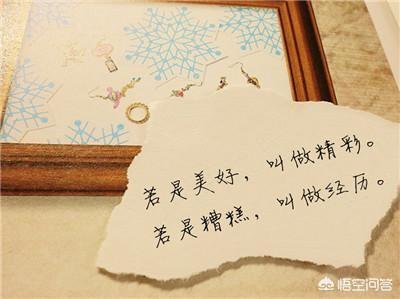 若是美好，叫做精彩。
若是糟糕，叫做经历。
悟空问答